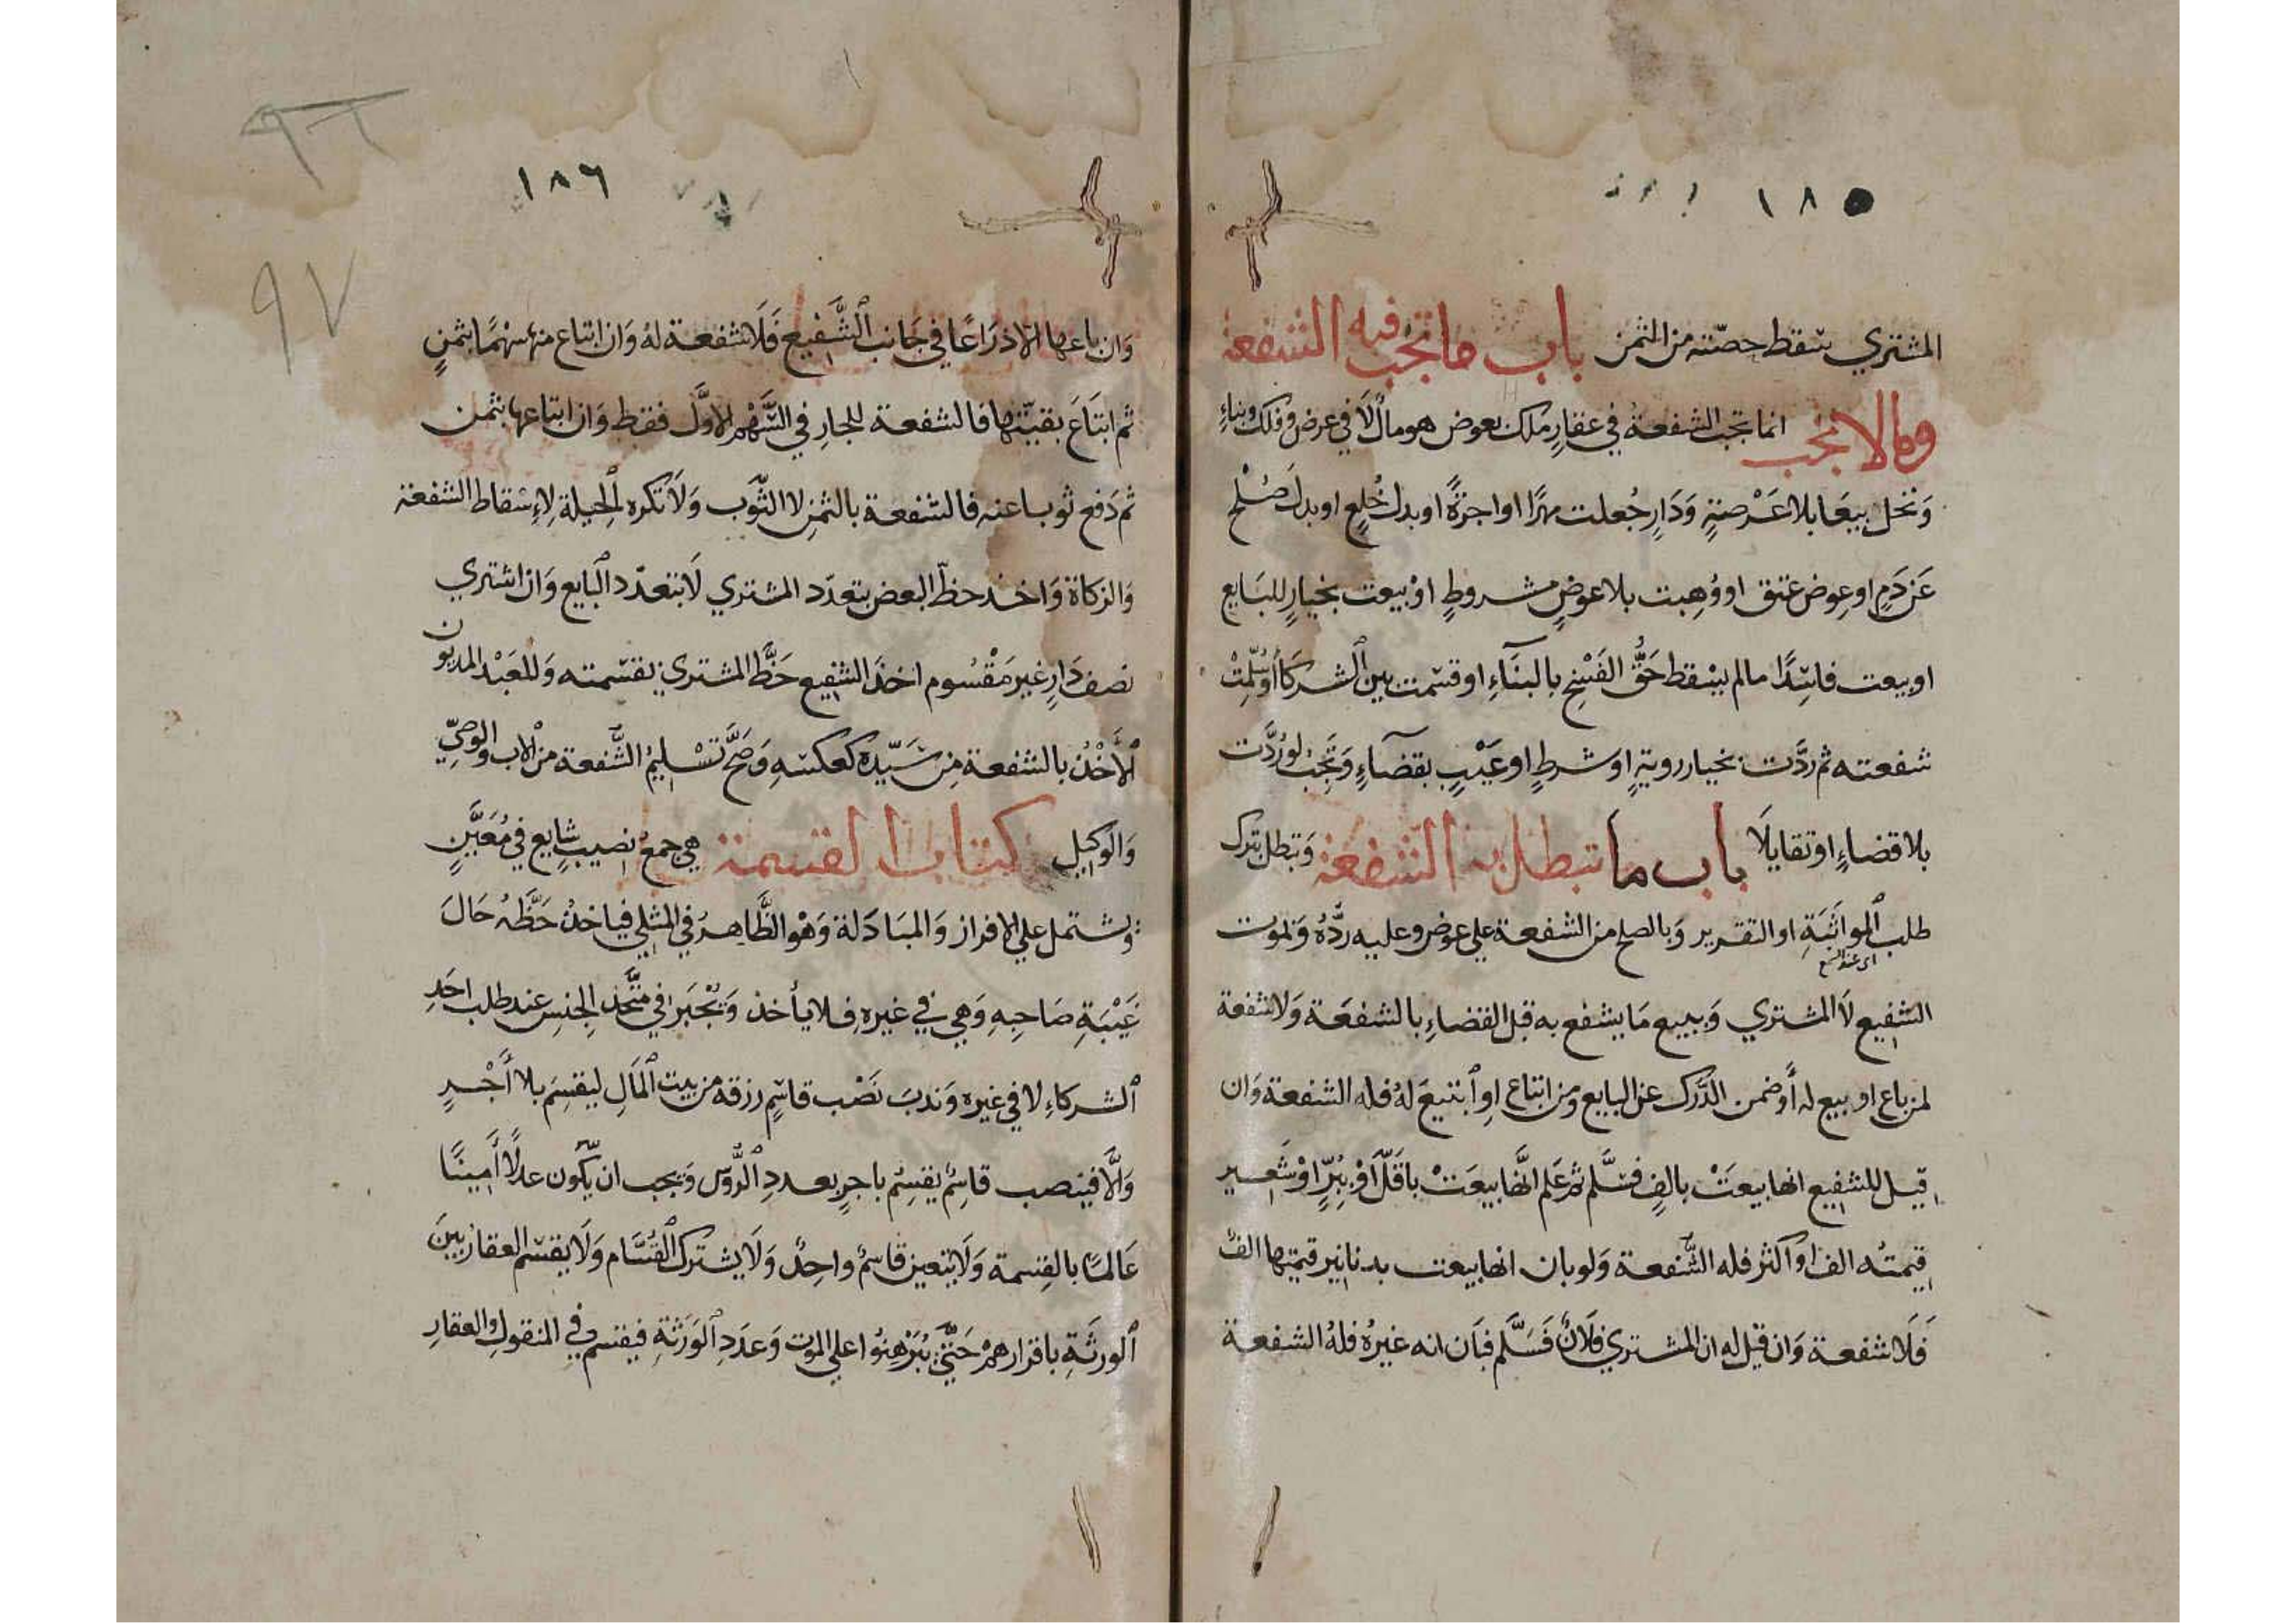 ١٨٥
المشتري سقط حصّته من الثمن باب ما تجب فيه الشفعة
وما لا تجب انما تجب الشفعة في عقارٍ ملك بعوض هو مالٌ لا في عرض وفلك وبناءٍ
وَنخل بيعَا بلا عَرْصةٍ وَدَارٍ جُعلت مهرًا او اجرةً او بدل خُلعٍ او بدل صُلْحٍ
عَن دَمٍ او عِوض عتق او وُهِبت بلا عوضٍ مشروطٍ اوْ بيعت بخيارٍ للبَايع
او بيعت فاسِدًا ما لم يسْقط حَقُّ الفَسْخِ بالبنَآءِ او قسّمت بين الشركآ أو سُلّمتْ
شفعته ثم ردَّت بخيار رويةٍ او شرطٍ او عَيْبٍ بقضآءٍ وَتَجبُ لو رُدَّت
بلا قضاءٍ او تقايلَا باب ما تبطل به الشّفعة وَتبطل بترك
طلب المواثَبَةِ او التقرير وَبالصلح من الشفعة على عوض وعليه ردُّهُ وَبموت
الشفيع لَا المشتري وَببيع مَا يشفع به قبل القضاءِ بالشفعَة وَلا شفعة
لمن باع او بيع له أو ضمن الدَّرك عن البايع ومن ابتاع اوِ ابتيعَ لهُ فله الشفعة وَان
قيل للشفيع انها بيعَتْ بالفٍ فسَلَّم ثم عَلم انَّها بيعَتْ باقَلَّ اوْ بِبُرٍّ اوْ شَعِير
قيمتُه الف او اكثر فله الشُّفعة وَلو بان انها بيعت بدنانير قيمتها الفٌ
فَلَا شفعة وَان قيل له ان المشتري فلَانٌ فَسَلَّم فبَان انه غيرُهُ فلهُ الشفعة
١٨٦
٩٧
وَان باعها الّا ذرَاعًا في جَانب الشَّفيع فَلَا شفعة لهُ وَان ابتاع منها سهْمًا بثمنٍ
ثم ابتَاعَ بقيّتها فالشفعة للجارِ في السَّهْم الاوَّل فقط وَان ابتاعها بثمن
ثم دَفع ثوبا عنه فالشفعة بالثمنِ لا الثَّوب وَلَا تكره الْحيلة لِاءِسْقاط الشفعة
وَالزكاة وَاخذ حظّ البعض بتعدّد المشتري لَا بتعدّد البايع وَان اشتري
نصف دَارٍ غير مَقْسُوم اخذَ الشفيع حَظَّ المشتري بقسمته وَللعَبْد المديون
الأخْذُ بالشفعة مِن سَيّده كعكسهِ وَصَحَّ تَسْليمُ الشُّفعة من الاب والوصيّ
وَالوكيل كتاب القسمة هي جمع نصيبٍ شايع في مُعَيَّنٍ
وتشتمل على الافراز وَالمبَادَلة وَهُو الظَّاهرُ في المثلي فياخذُ حَظَّهُ حَالَ
غَيْبَةِ صَاحِبِهِ وَهي في غيره فلا يأخذ وَيُجْبَرُ في متَّحد الجنسِ عند طلب احَدِ
الشركاءِ لا في غيره وَندبَ نَصْب قاسِمٍ رزقه من بيت المَالِ ليقسِمَ بلا أَجْرٍ
وَالَّا فينصب قاسِمٌ يقسِمُ باجرٍ بعددِ الرُّوس وَيجب ان يكون عدلًا أمِينًا
عَالمًا بالقِسمة وَلَا يتعين قاسمٌ واحِدٌ وَلَا يشترك القُسَّام وَلَا يقسَم العقار بينَ
الورثَةِ باقرارهمْ حَتَّى يُبَرْهِنُوا على الموت وَعدَدِ الوَرَثةِ فيقسم في المنقولِ والعقارِ